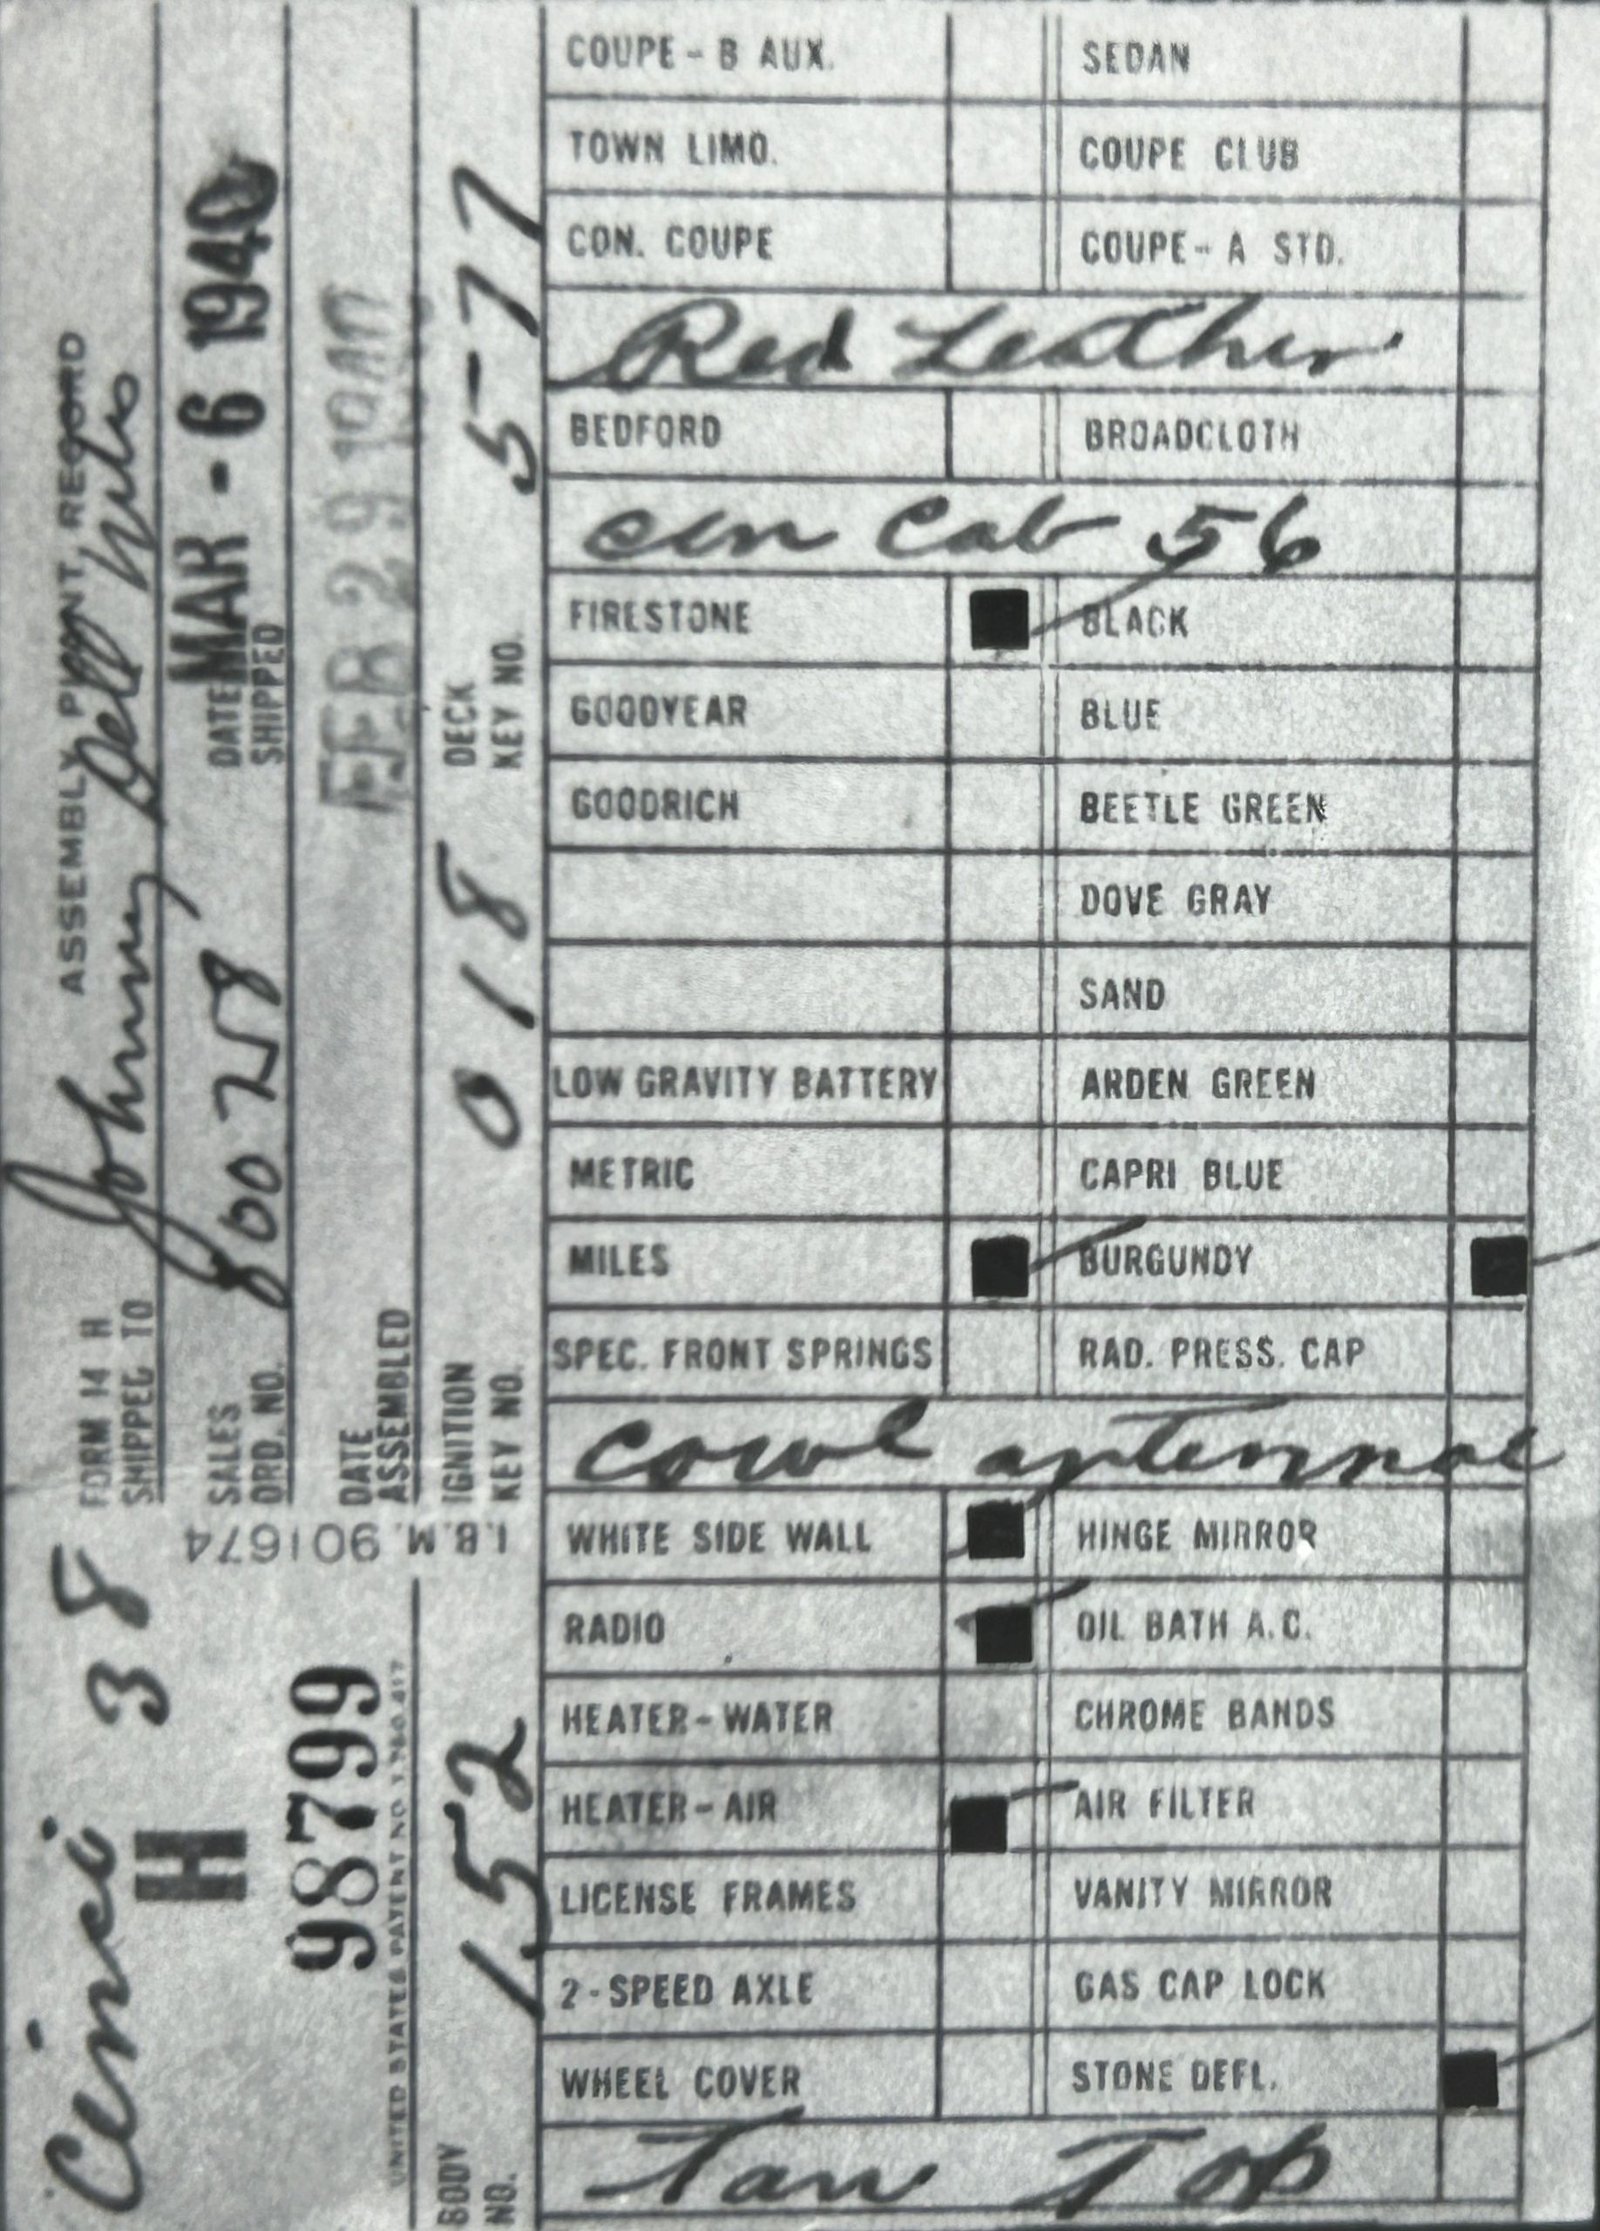 FORM 14 H
ASSEMBLY PLANT, RECORD
SHIPPED TO
Johnny
Cinci 38
H
98799
SALES ORD. NO.
800258
DATE SHIPPED
MAR - 6 1940
DATE ASSEMBLED
FEB 29
I.B.M. 901674
UNITED STATES PATENT NO.
BODY NO.
152
IGNITION KEY NO.
018
DECK KEY NO.
577
COUPE - B AUX. SEDAN
TOWN LIMO. COUPE CLUB
CON. COUPE COUPE - A STD.
Red Leather
BEDFORD BROADCLOTH
Cab 56
FIRESTONE ■ BLACK
GOODYEAR BLUE
GOODRICH BEETLE GREEN
DOVE GRAY
SAND
LOW GRAVITY BATTERY ARDEN GREEN
METRIC CAPRI BLUE
MILES ■ BURGUNDY ■
SPEC. FRONT SPRINGS RAD. PRESS. CAP
Cowl antennae
WHITE SIDE WALL ■ HINGE MIRROR
RADIO ■ OIL BATH A.C.
HEATER - WATER CHROME BANDS
HEATER - AIR ■ AIR FILTER
LICENSE FRAMES VANITY MIRROR
2 - SPEED AXLE GAS CAP LOCK
WHEEL COVER STONE DEFL. ■
Tan Top